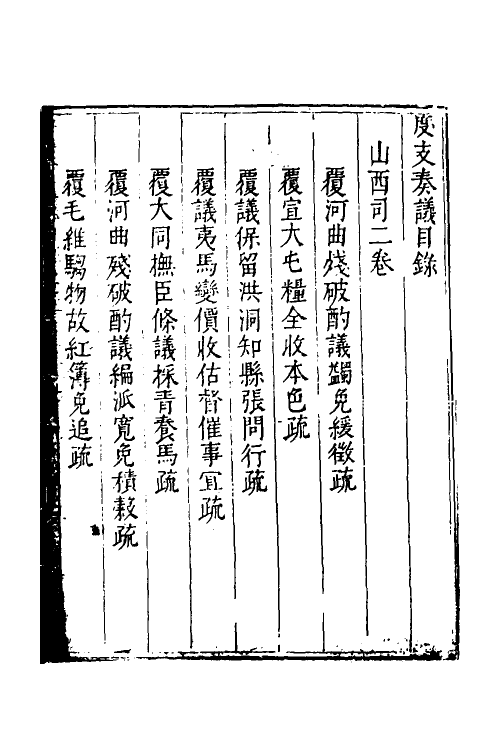 度支奏議目錄
山西司二卷
覆河曲殘破酌議蠲免緩徵疏
覆宣大屯糧全收本色疏
覆議保留洪洞知縣張問行疏
覆議夷馬變價收估督催事宜疏
覆大同撫臣條議採青養馬疏
覆河曲殘破酌議編派寬免積穀疏
覆毛維騶物故紅簿免追疏